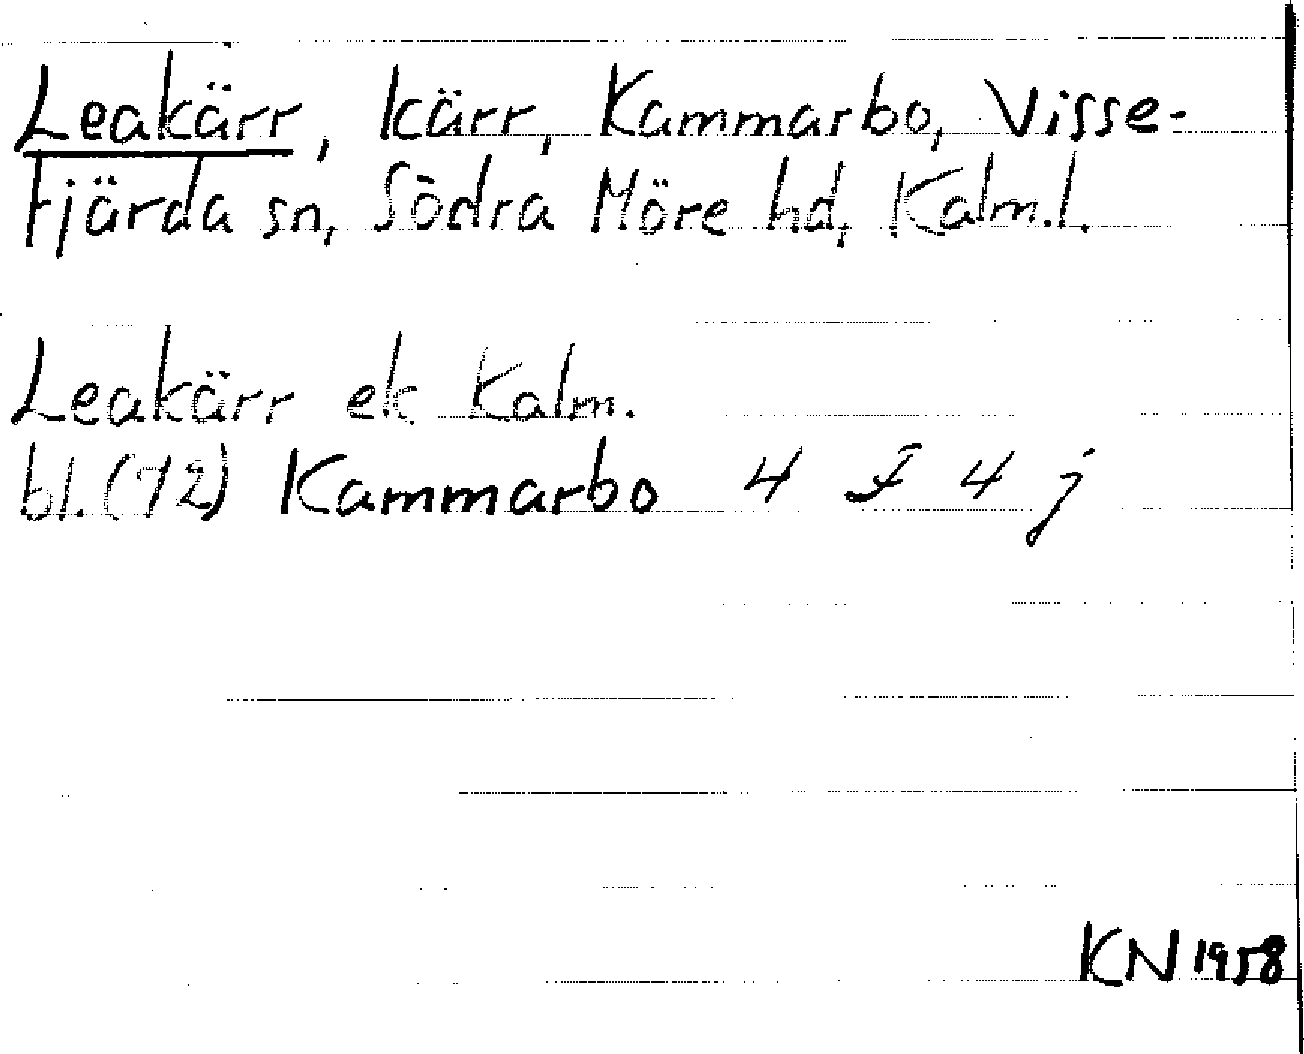 Leakärr, kärr, Kammarbo, Visse-
fjärda sn, Södra Möre hd, Kalm.l.
Leakärr ek Kalm.
bl.(72) Kammarbo 4 F 4 j
KN 1958